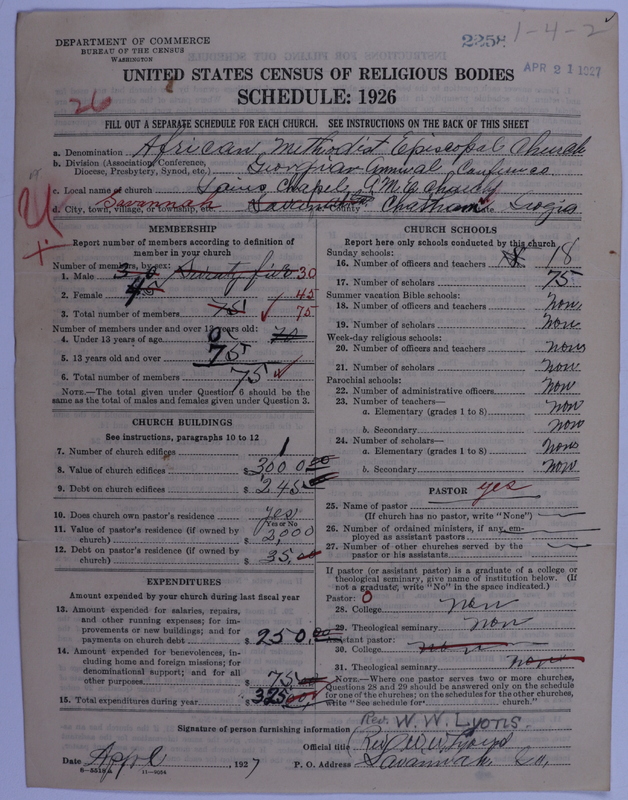 DEPARTMENT OF COMMERCE
BUREAU OF THE CENSUS
WASHINGTON
2258
1-4-2
APR 21 1927
UNITED STATES CENSUS OF RELIGIOUS BODIES
SCHEDULE: 1926
26
FILL OUT A SEPARATE SCHEDULE FOR EACH CHURCH. SEE INSTRUCTIONS ON THE BACK OF THIS SHEET
a. Denomination African Methodist Episcopal Church
b. Division (Association, Conference, Diocese, Presbytery, Synod, etc.) Georgian Annual Conference
c. Local name of church Chapel, A.M.E. Church
d. City, town, village, or township, etc. Savannah County Chatham State
MEMBERSHIP
Report number of members according to definition of member in your church
Number of members, by sex:
1. Male 30 Seventy five 30
2. Female 45 45
3. Total number of members 75 75
Number of members under and over 13 years old:
4. Under 13 years of age 0
5. 13 years old and over 75
6. Total number of members 75
NOTE.—The total given under Question 6 should be the same as the total of males and females given under Question 3.
CHURCH BUILDINGS
See instructions, paragraphs 10 to 12
7. Number of church edifices 1
8. Value of church edifices $ 3000.00
9. Debt on church edifices $ 245
10. Does church own pastor's residence yes
Yes or No
11. Value of pastor's residence (if owned by church) $ 2,000
12. Debt on pastor's residence (if owned by church) $ 35.00
EXPENDITURES
Amount expended by your church during last fiscal year
13. Amount expended for salaries, repairs, and other running expenses; for improvements or new buildings; and for payments on church debt $ 250.00
14. Amount expended for benevolences, including home and foreign missions; for denominational support; and for all other purposes $ 75.00
15. Total expenditures during year $ 325.00
CHURCH SCHOOLS
Report here only schools conducted by this church
Sunday schools:
16. Number of officers and teachers 18
17. Number of scholars 75
Summer vacation Bible schools:
18. Number of officers and teachers non
19. Number of scholars non
Week-day religious schools:
20. Number of officers and teachers non
21. Number of scholars non
Parochial schools:
22. Number of administrative officers non
23. Number of teachers—
a. Elementary (grades 1 to 8) non
b. Secondary non
24. Number of scholars—
a. Elementary (grades 1 to 8) non
b. Secondary non
PASTOR yes
25. Name of pastor
(If church has no pastor, write "None")
26. Number of ordained ministers, if any, employed as assistant pastors
27. Number of other churches served by the pastor or his assistants
If pastor (or assistant pastor) is a graduate of a college or theological seminary, give name of institution below. (If not a graduate, write "No" in the space indicated.)
Pastor: 0
28. College non
29. Theological seminary non
Assistant pastor:
30. College non
31. Theological seminary non
NOTE.—Where one pastor serves two or more churches, Questions 28 and 29 should be answered only on the schedule for one of the churches; on the schedules for the other churches, write "See schedule for church."
Signature of person furnishing information Rev. W. W. Lyons.
Official title Rev W W
Date April, 1927
P. O. Address Savannah Ga.
8-5518A 11-9054